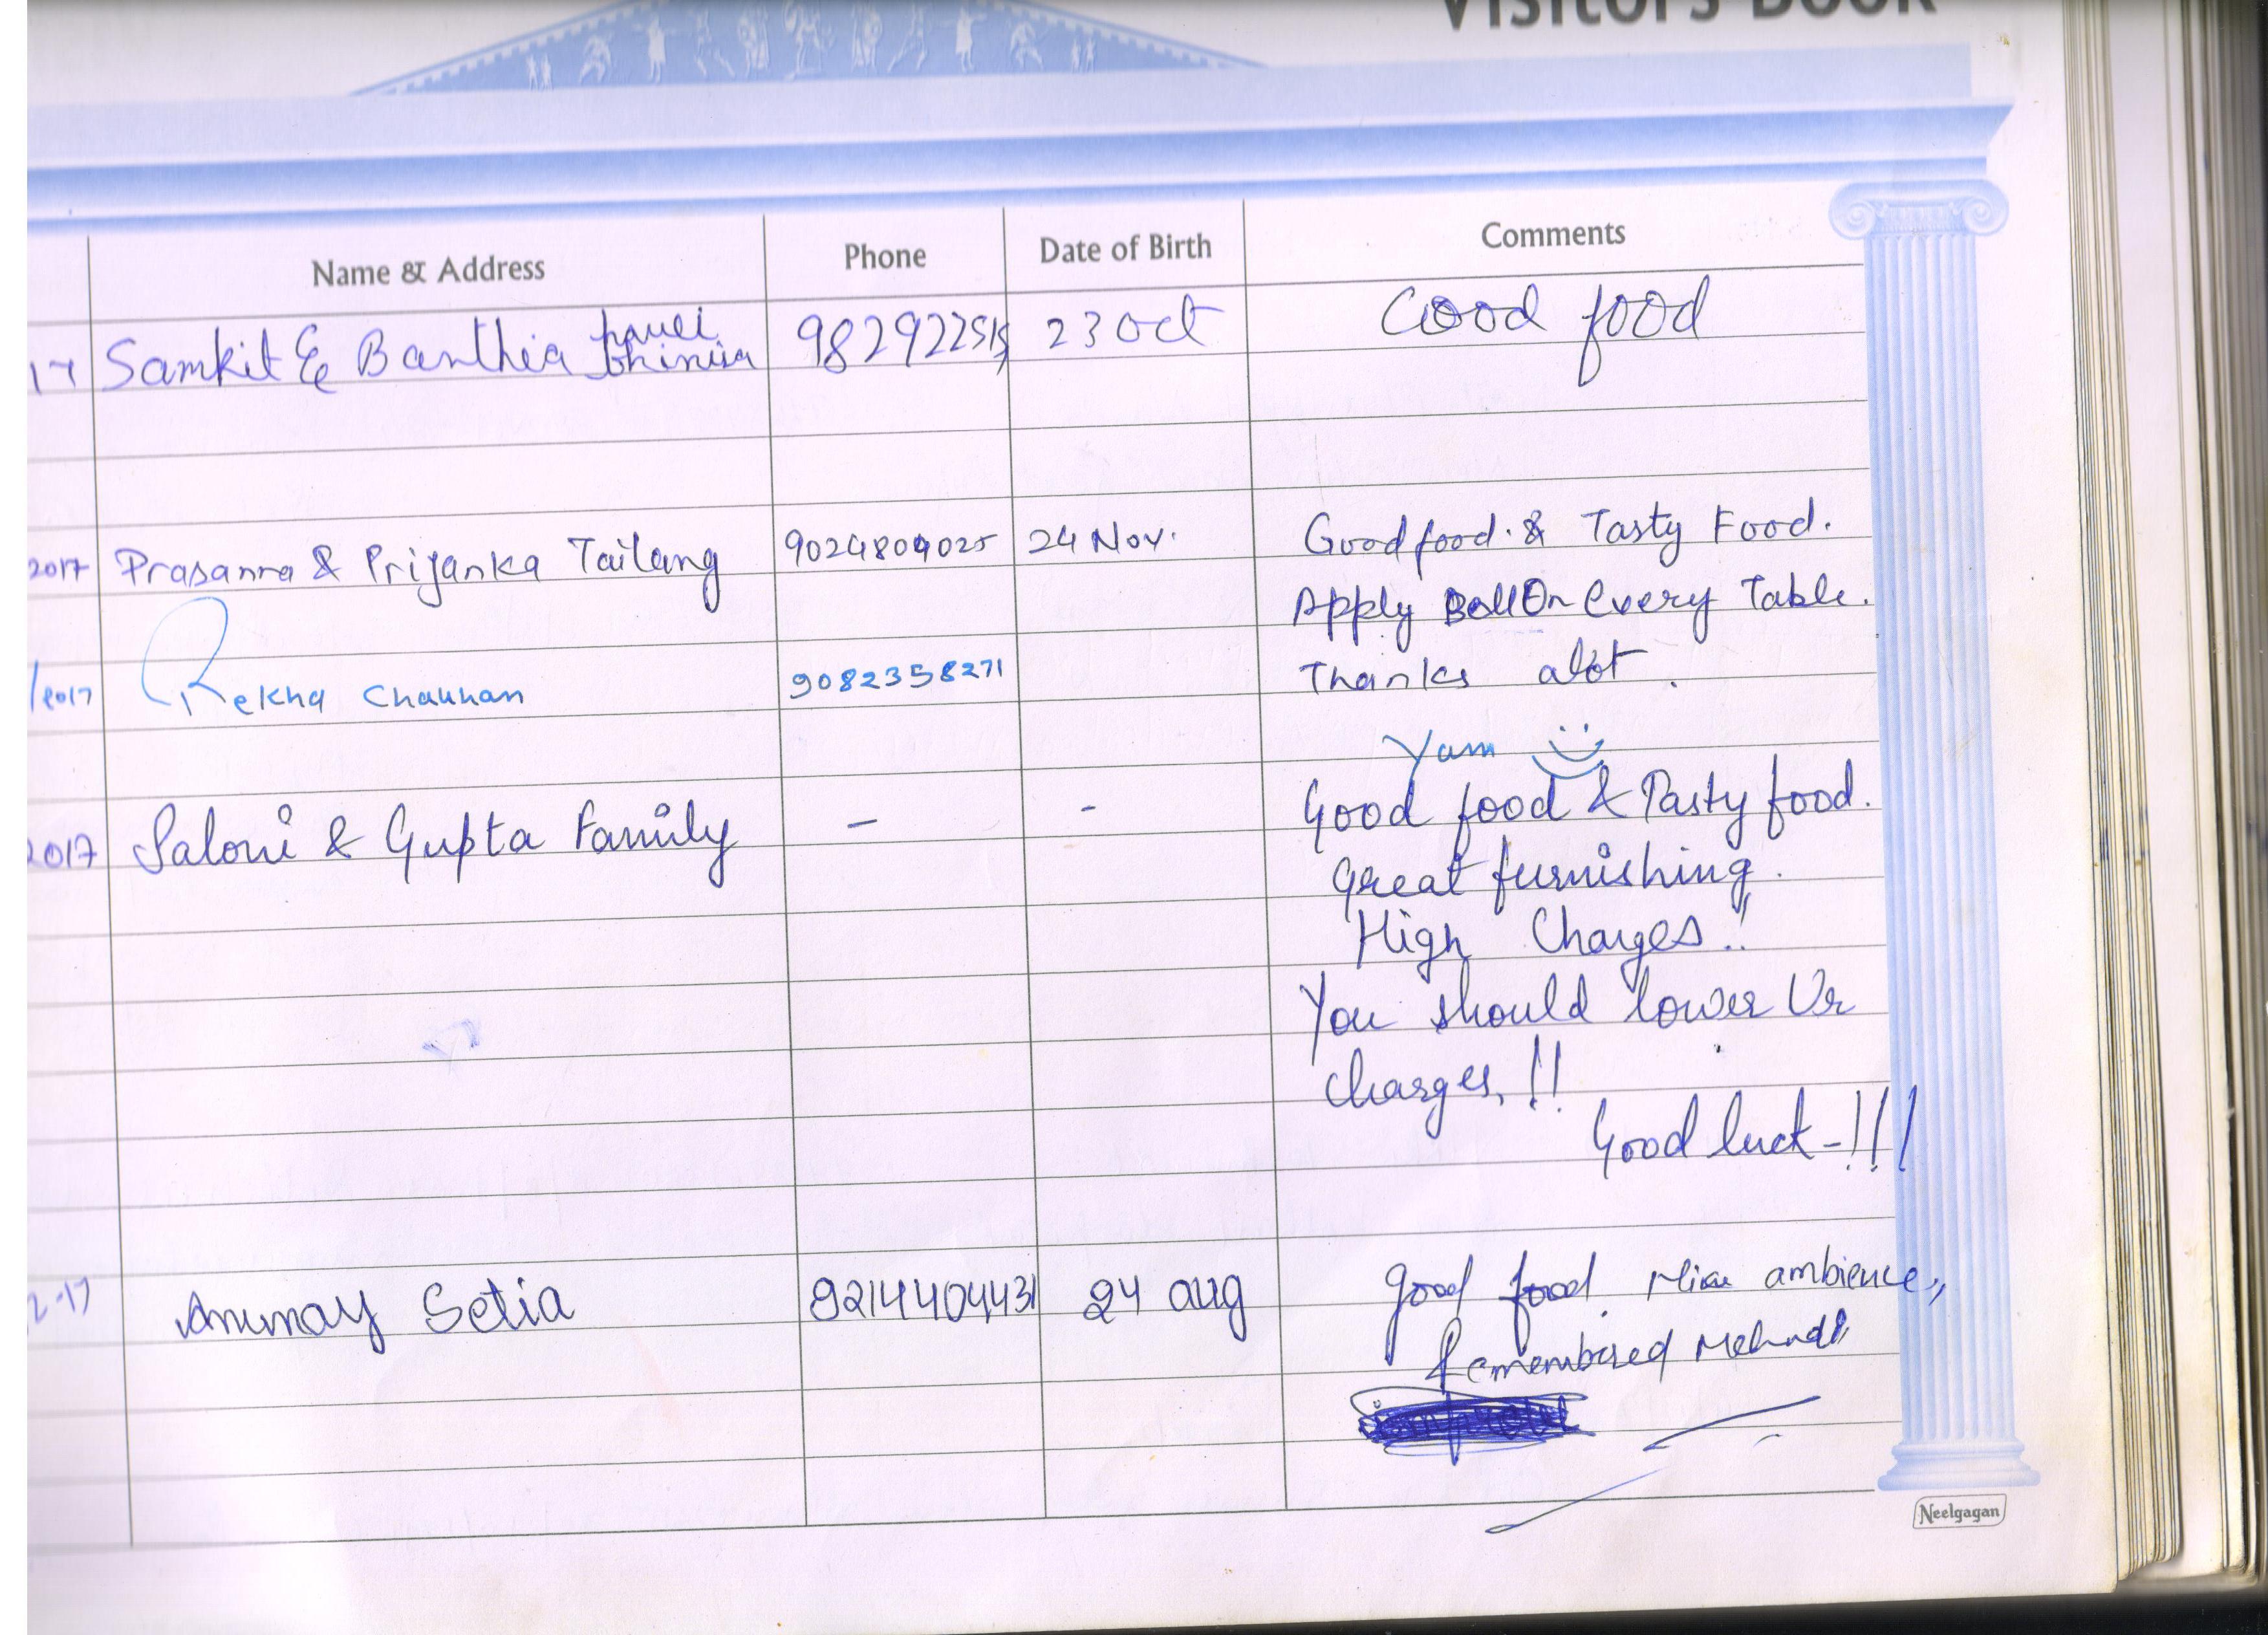 Visitors Book
Name & Address Phone Date of Birth Comments
17 Samkit & Banthia 23 Oct Good food
2017 Prasanna & Priyanka Tailang 9024809025 24 Nov. Good food. & Tasty Food.
Apply Bell On Every Table.
/2017 Rekha Chauhan 9082358271 Thanks alot.
Yam
2017 Saloni & Gupta Family - - Good food & Tasty food.
Great furnishing.
High Charges!!
You should lower Ur
charges,!!
Good luck-!!!
2-17 Anunay Setia 9214404431 24 aug good food. ambience,,
Remembered Mehndi
Neelgagan